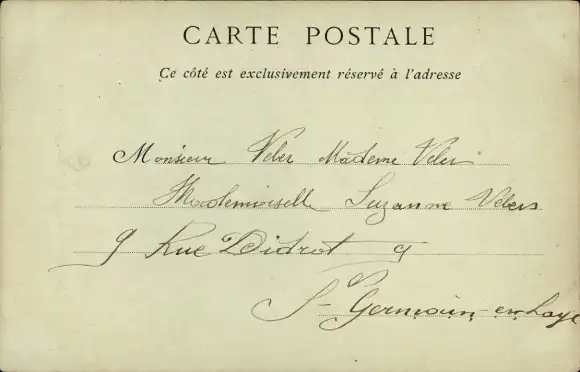 CARTE POSTALE
Ce côté est exclusivement réservé à l'adresse
Monsieur Veler Madame Veler
Mademoiselle Suzanne Velers
9 Rue Didrot 9
St Germain-en-Laye